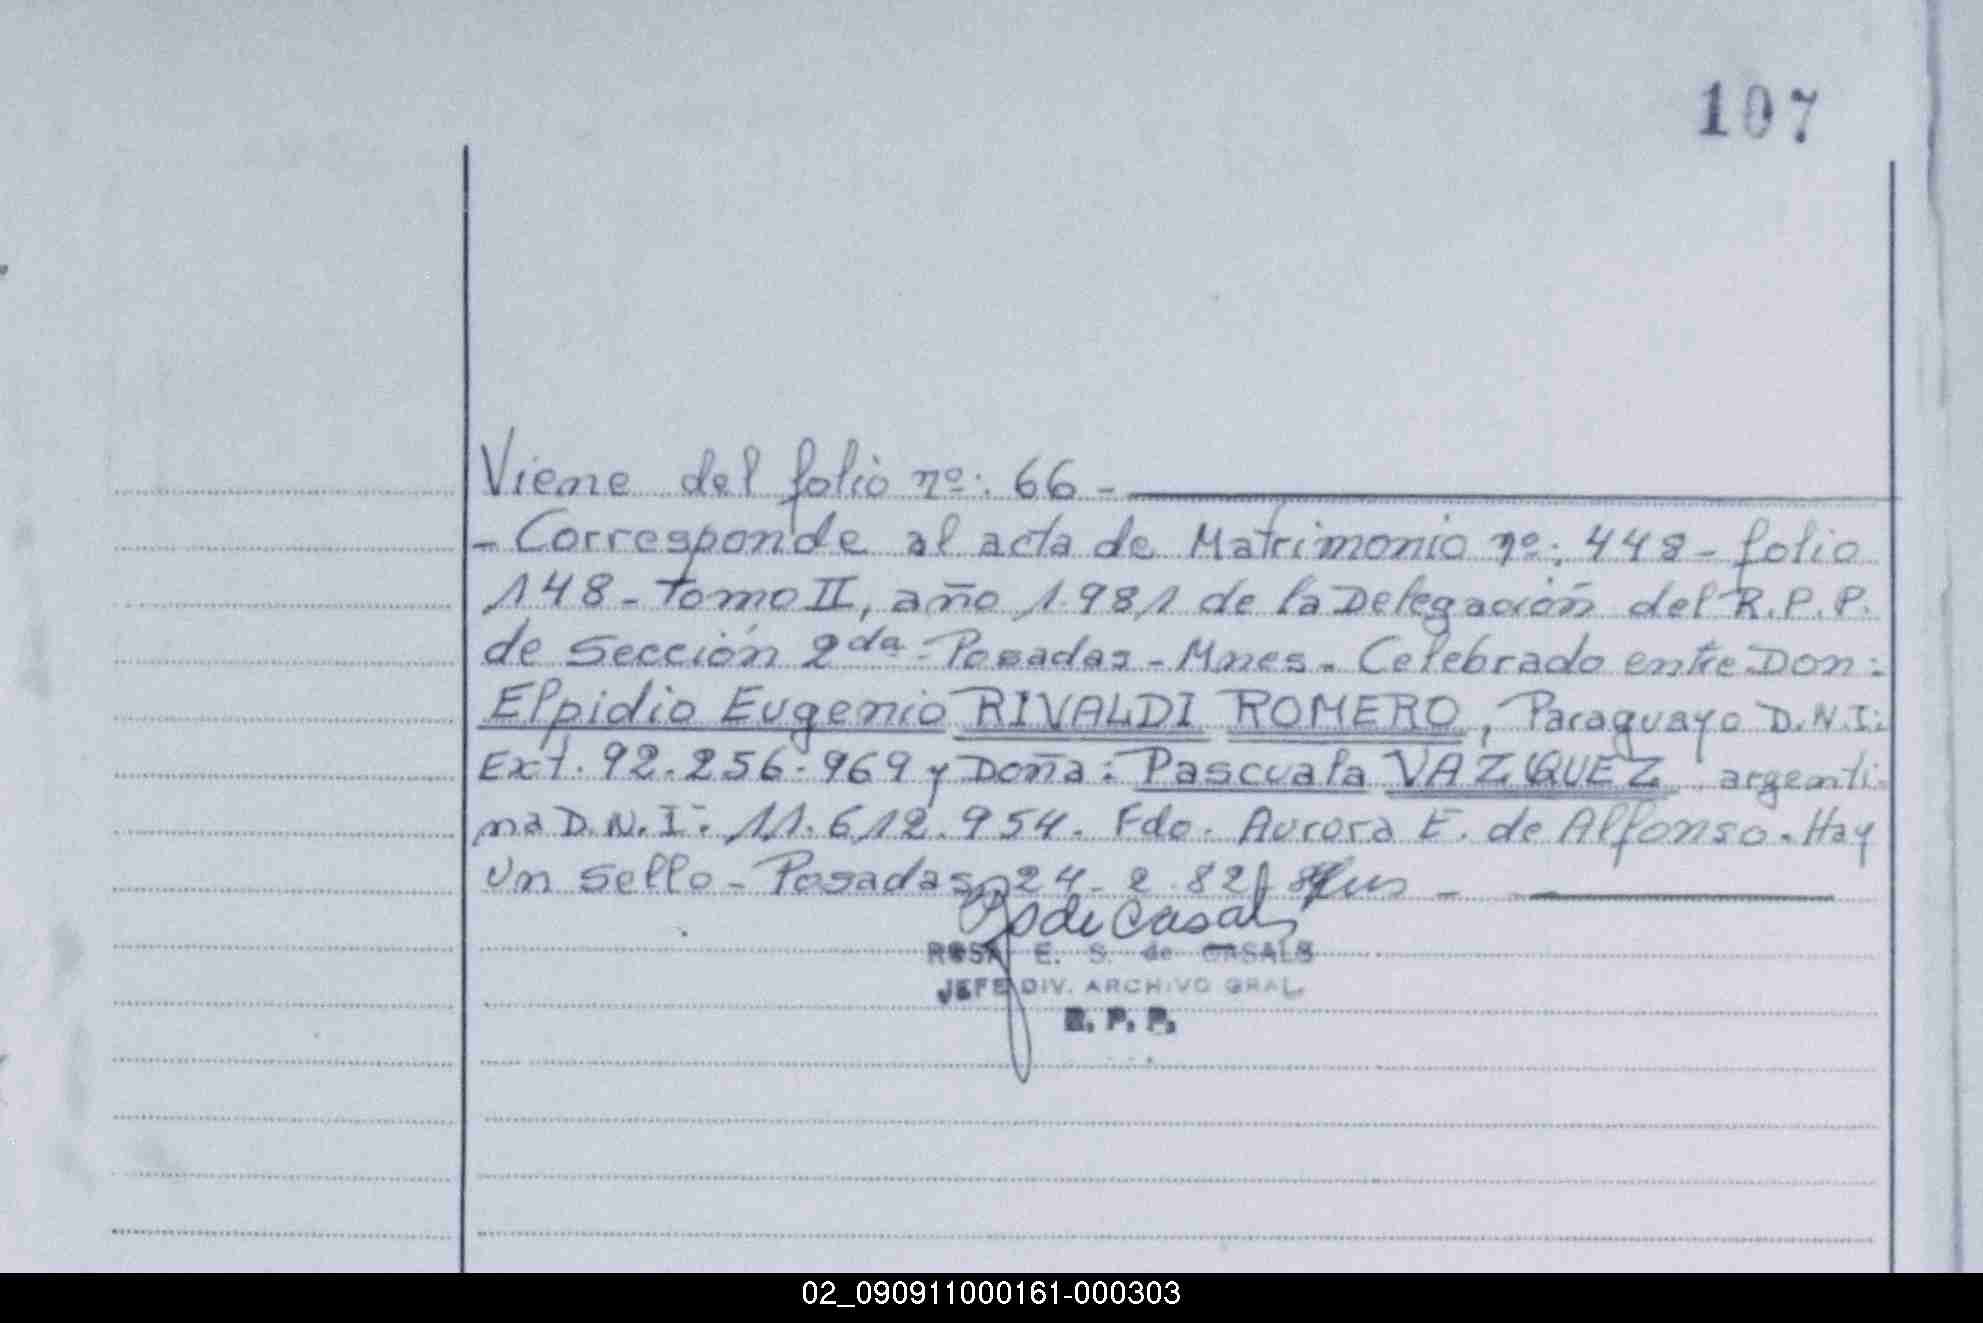 107
Viene del folio nº: 66 -
- Corresponde al acta de Matrimonio nº: 448 - folio
148 - Tomo II, año 1.981 de la Delegación del R.P.P.
de Sección 2da - Posadas - Mnes. Celebrado entre Don:
Elpidio Eugenio RIVALDI ROMERO, Paraguayo D.N.I:
Ext. 92.256.969 y Doña: Pascuala VAZQUEZ, argenti-
na D.N.I: 11.612.954. Fdo. Aurora E. de Alfonso. Hay
un sello - Posadas, 24 - 2 - 82
de Casals
ROSA E. S. de CASALS
JEFE DIV. ARCHIVO GRAL.
R. P. P.
02_090911000161-000303